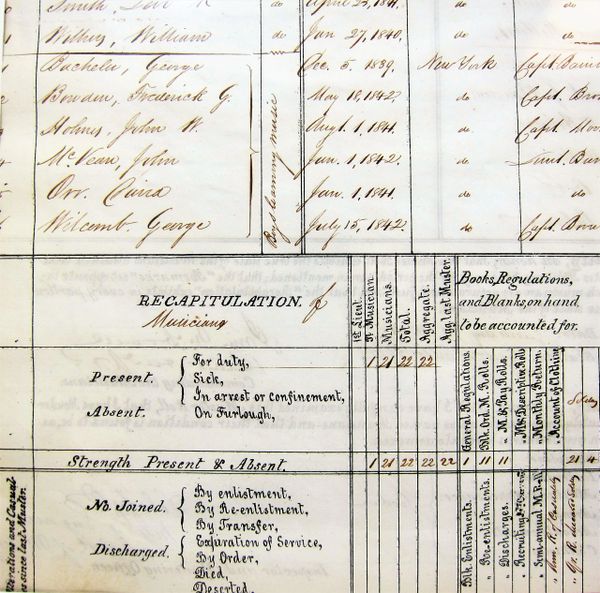 Smith, Levi April 23, 1841. do do
1 Wilkus, William do Jan 27, 1840. do do
1 Bachelu, George Dec. 5, 1839. New York Capt.
2 Bowden, Frederick G. May 18, 1842. do Capt.
3 Holmes, John W. Augt. 1, 1841. do Capt. Moo
4 McVean, John Jan. 1, 1842. do Lieut.
5 Orr, David Jan. 1, 1841. do do
6 Wilcomb, George July 15, 1842. do Capt.
Boys learning music
RECAPITULATION. of
Musicians
1st Lieut.
Pr Musician
Musicians.
Total.
Aggregate.
Agg. last Muster.
Books, Regulations,
and Blanks, on hand
to be accounted for.
Present.
For duty, 1 21 22 22
Sick,
In arrest or confinement,
Absent.
On Furlough,
General Regulations.
Blk. Ord. M. Rolls.
" M. & Pay Rolls.
" M. & Descriptive Rolls
" Monthly Return.
" Account of Clothing
Strength Present & Absent. 1 21 22 22 22 1 11 11 21 4
Alterations and Casual
es since last Muster.
No. Joined.
By enlistment,
By Re-enlistment,
By Transfer,
Discharged.
Expiration of Service,
By Order,
Died,
Deserted.
Blk. Enlistments.
" Re-enlistments.
" Discharges.
" Recruiting
" Semi-annual M. Roll